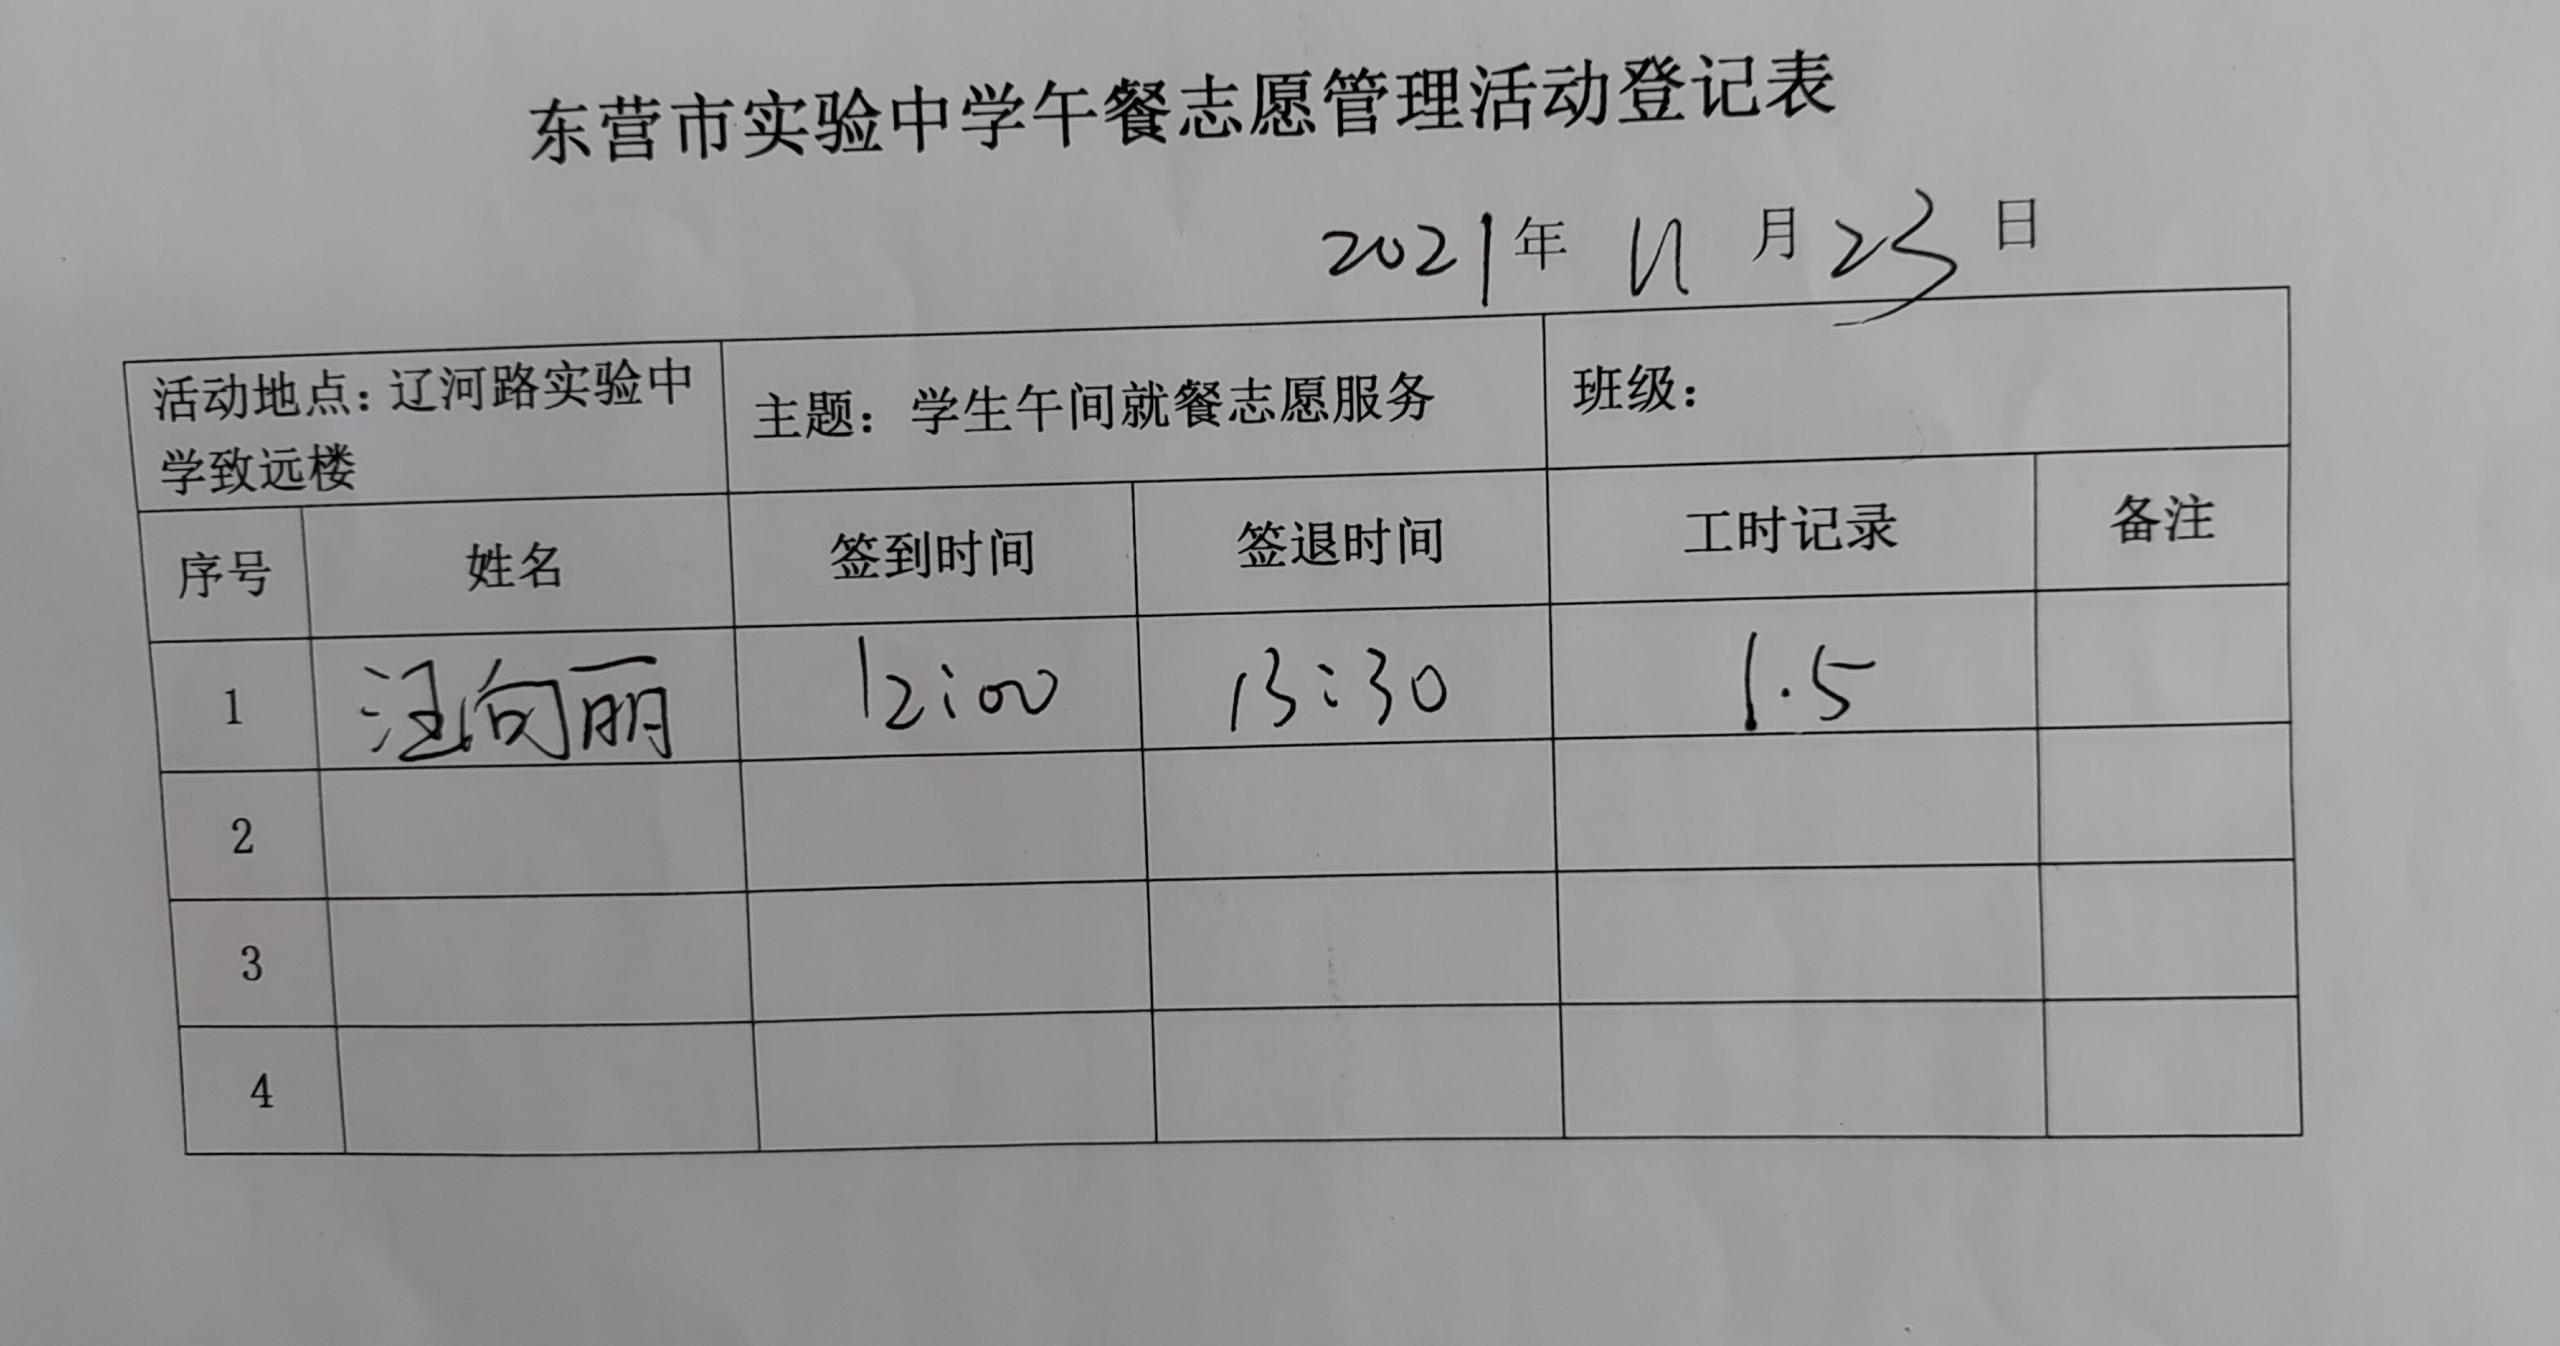 东营市实验中学午餐志愿管理活动登记表
2021年 11 月 23 日
活动地点：辽河路实验中学致远楼 主题：学生午间就餐志愿服务 班级：
序号 姓名 签到时间 签退时间 工时记录 备注
1 汪向丽 12:00 13:30 1.5
2
3
4